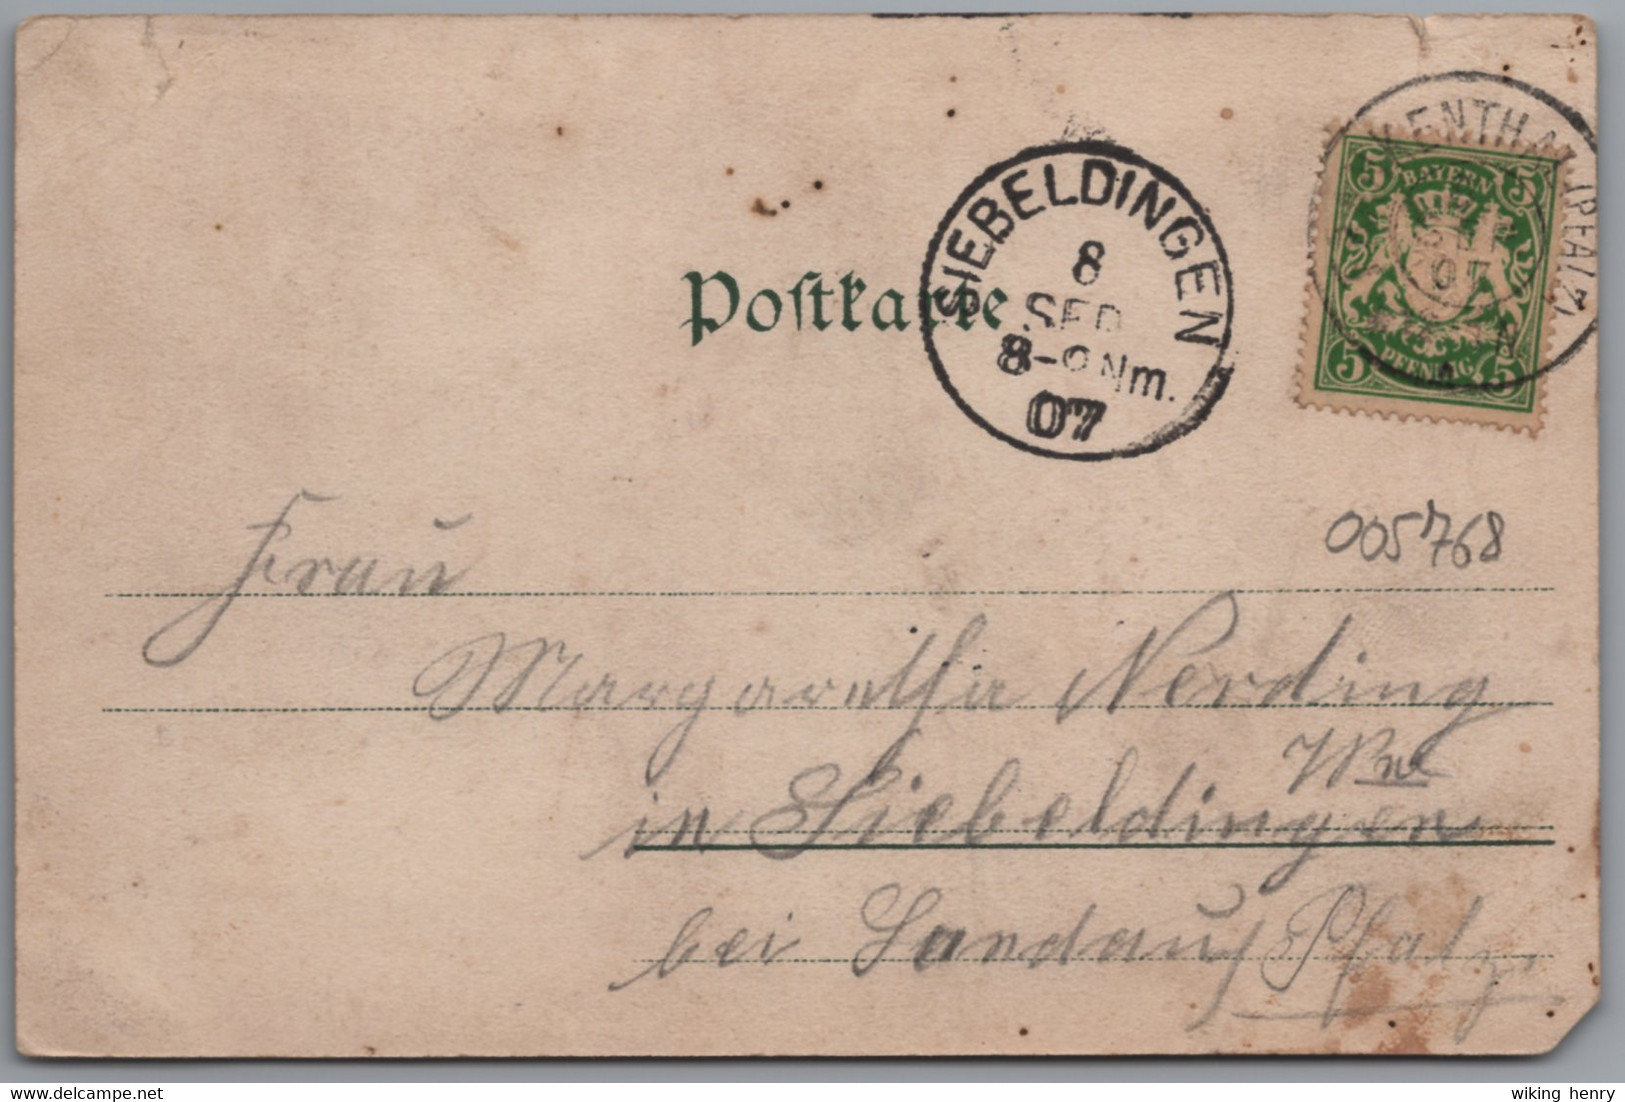 Postkarte
SIEBELDINGEN
8
SEP.
8-9 Nm.
07
KENTHAL (PFALZ)
SEP
07
5 BAYERN 5
5 PFENNIG 5
005768
Frau
Margaretha Nerding
Ww
in Siebeldingen
bei Landau/Pfalz.
www.delcampe.net
wiking henry